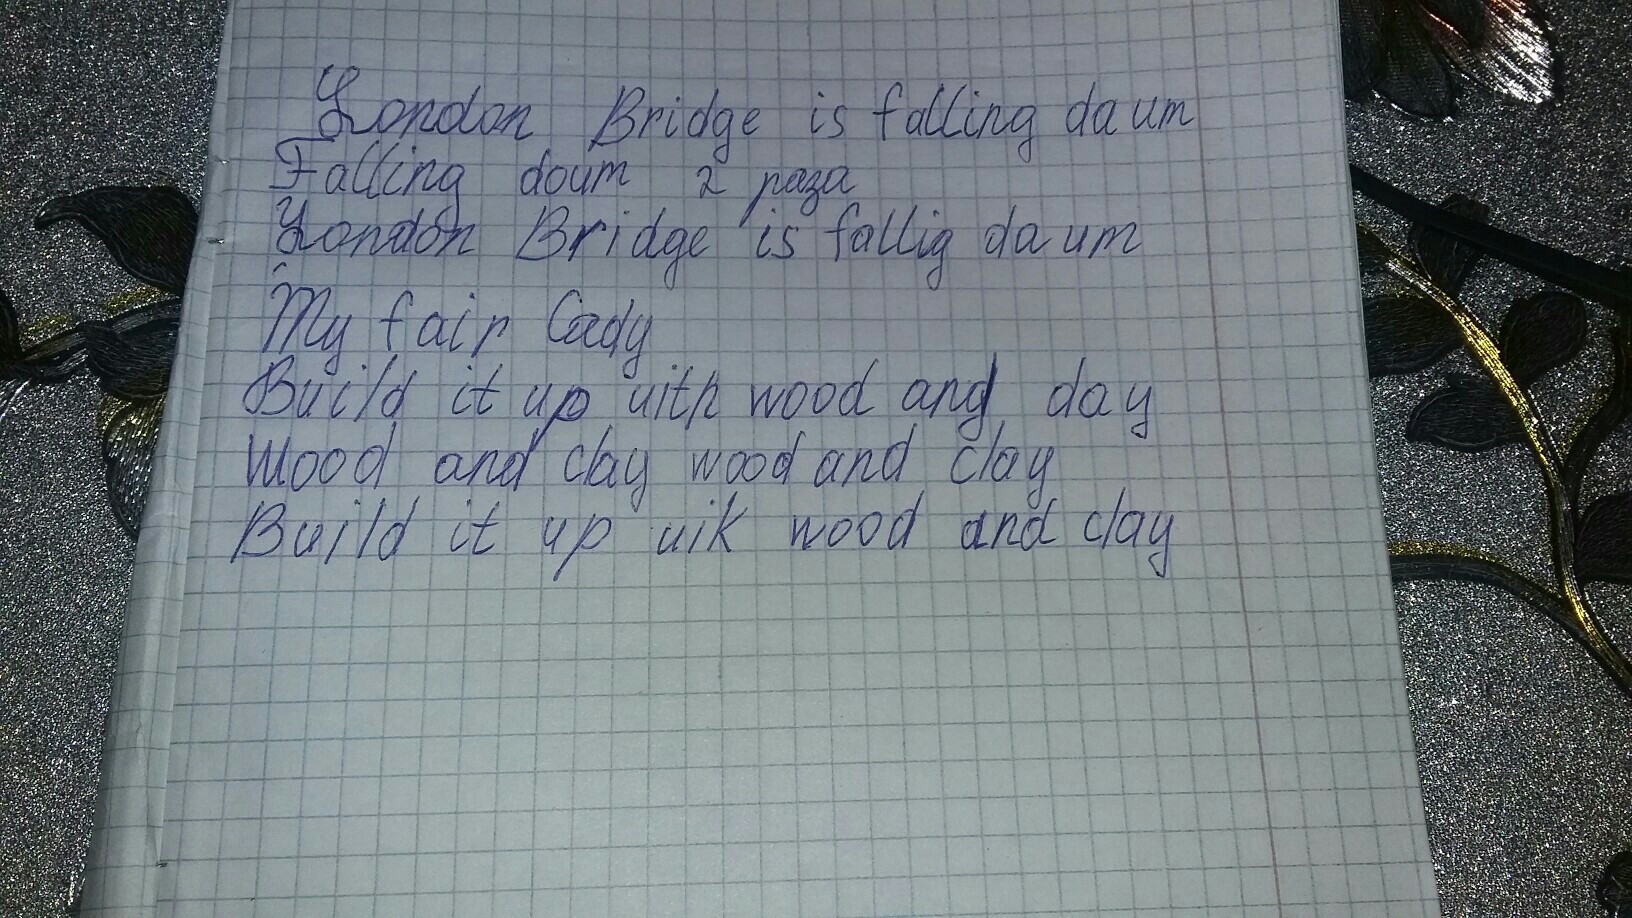 London Bridge is falling daum
Falling doum 2 раза
London Bridge is fallig daum
My fair Lady
Build it up uith wood and day
Wood and clay wood and clay
Build it up uik wood and clay